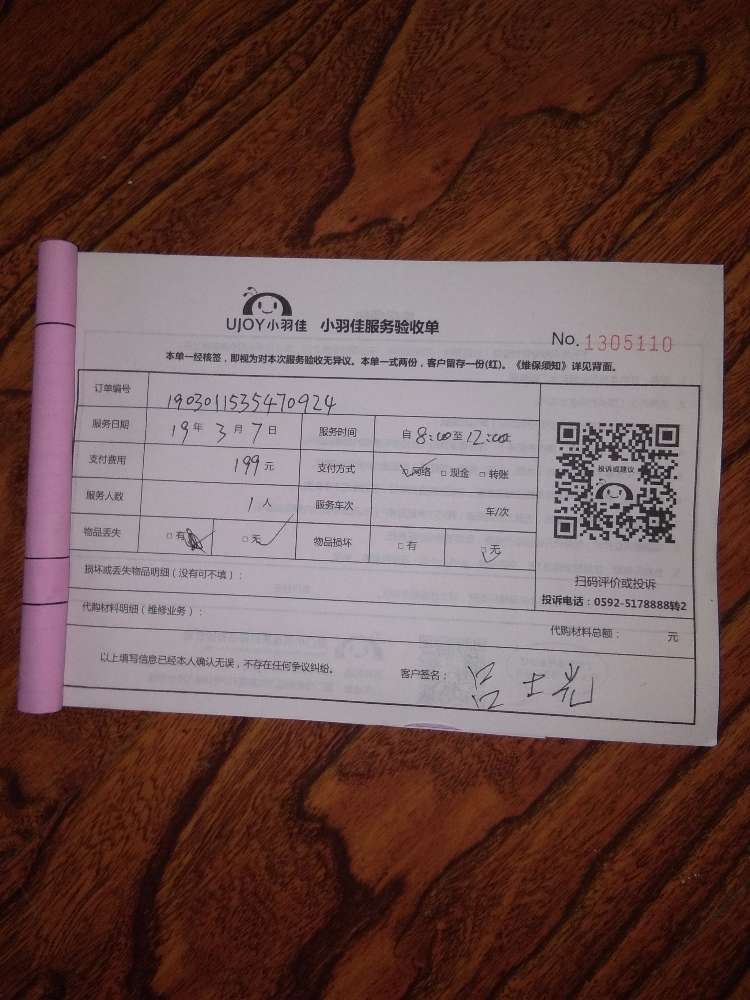 UJOY小羽佳 小羽佳服务验收单
No. 1305110
本单一经核签，即视为对本次服务验收无异议。本单一式两份，客户留存一份(红)。《维保须知》详见背面。
订单编号 1903011535470924
服务日期 19年3月7日 服务时间 自8:00至12:00
支付费用 199元 支付方式 网络 □现金 □转账
服务人数 1人 服务车次 车/次
物品丢失 □有 □无 物品损坏 □有 □无
投诉或建议
扫码评价或投诉
投诉电话：0592-5178888转2
损坏或丢失物品明细（没有可不填）：
代购材料明细（维修业务）： 代购材料总额： 元
以上填写信息已经本人确认无误，不存在任何争议纠纷。 客户签名：吕士光